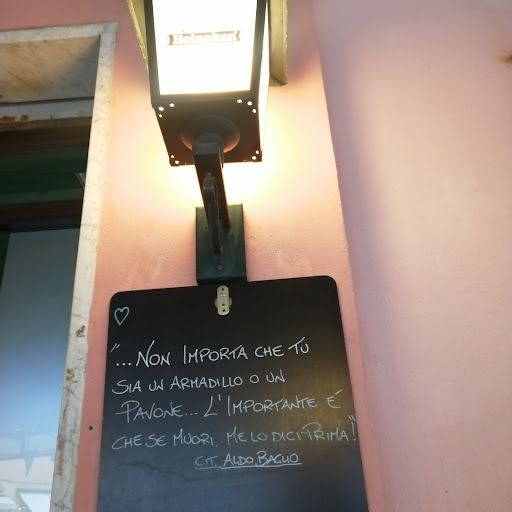 Heineken
"...NON IMPORTA CHE TU
SIA UN ARMADILLO O UN
PAVONE... L'IMPORTANTE É
CHE SE MUORI, ME LO DICI PRIMA!"
CIT. ALDO BAGLIO